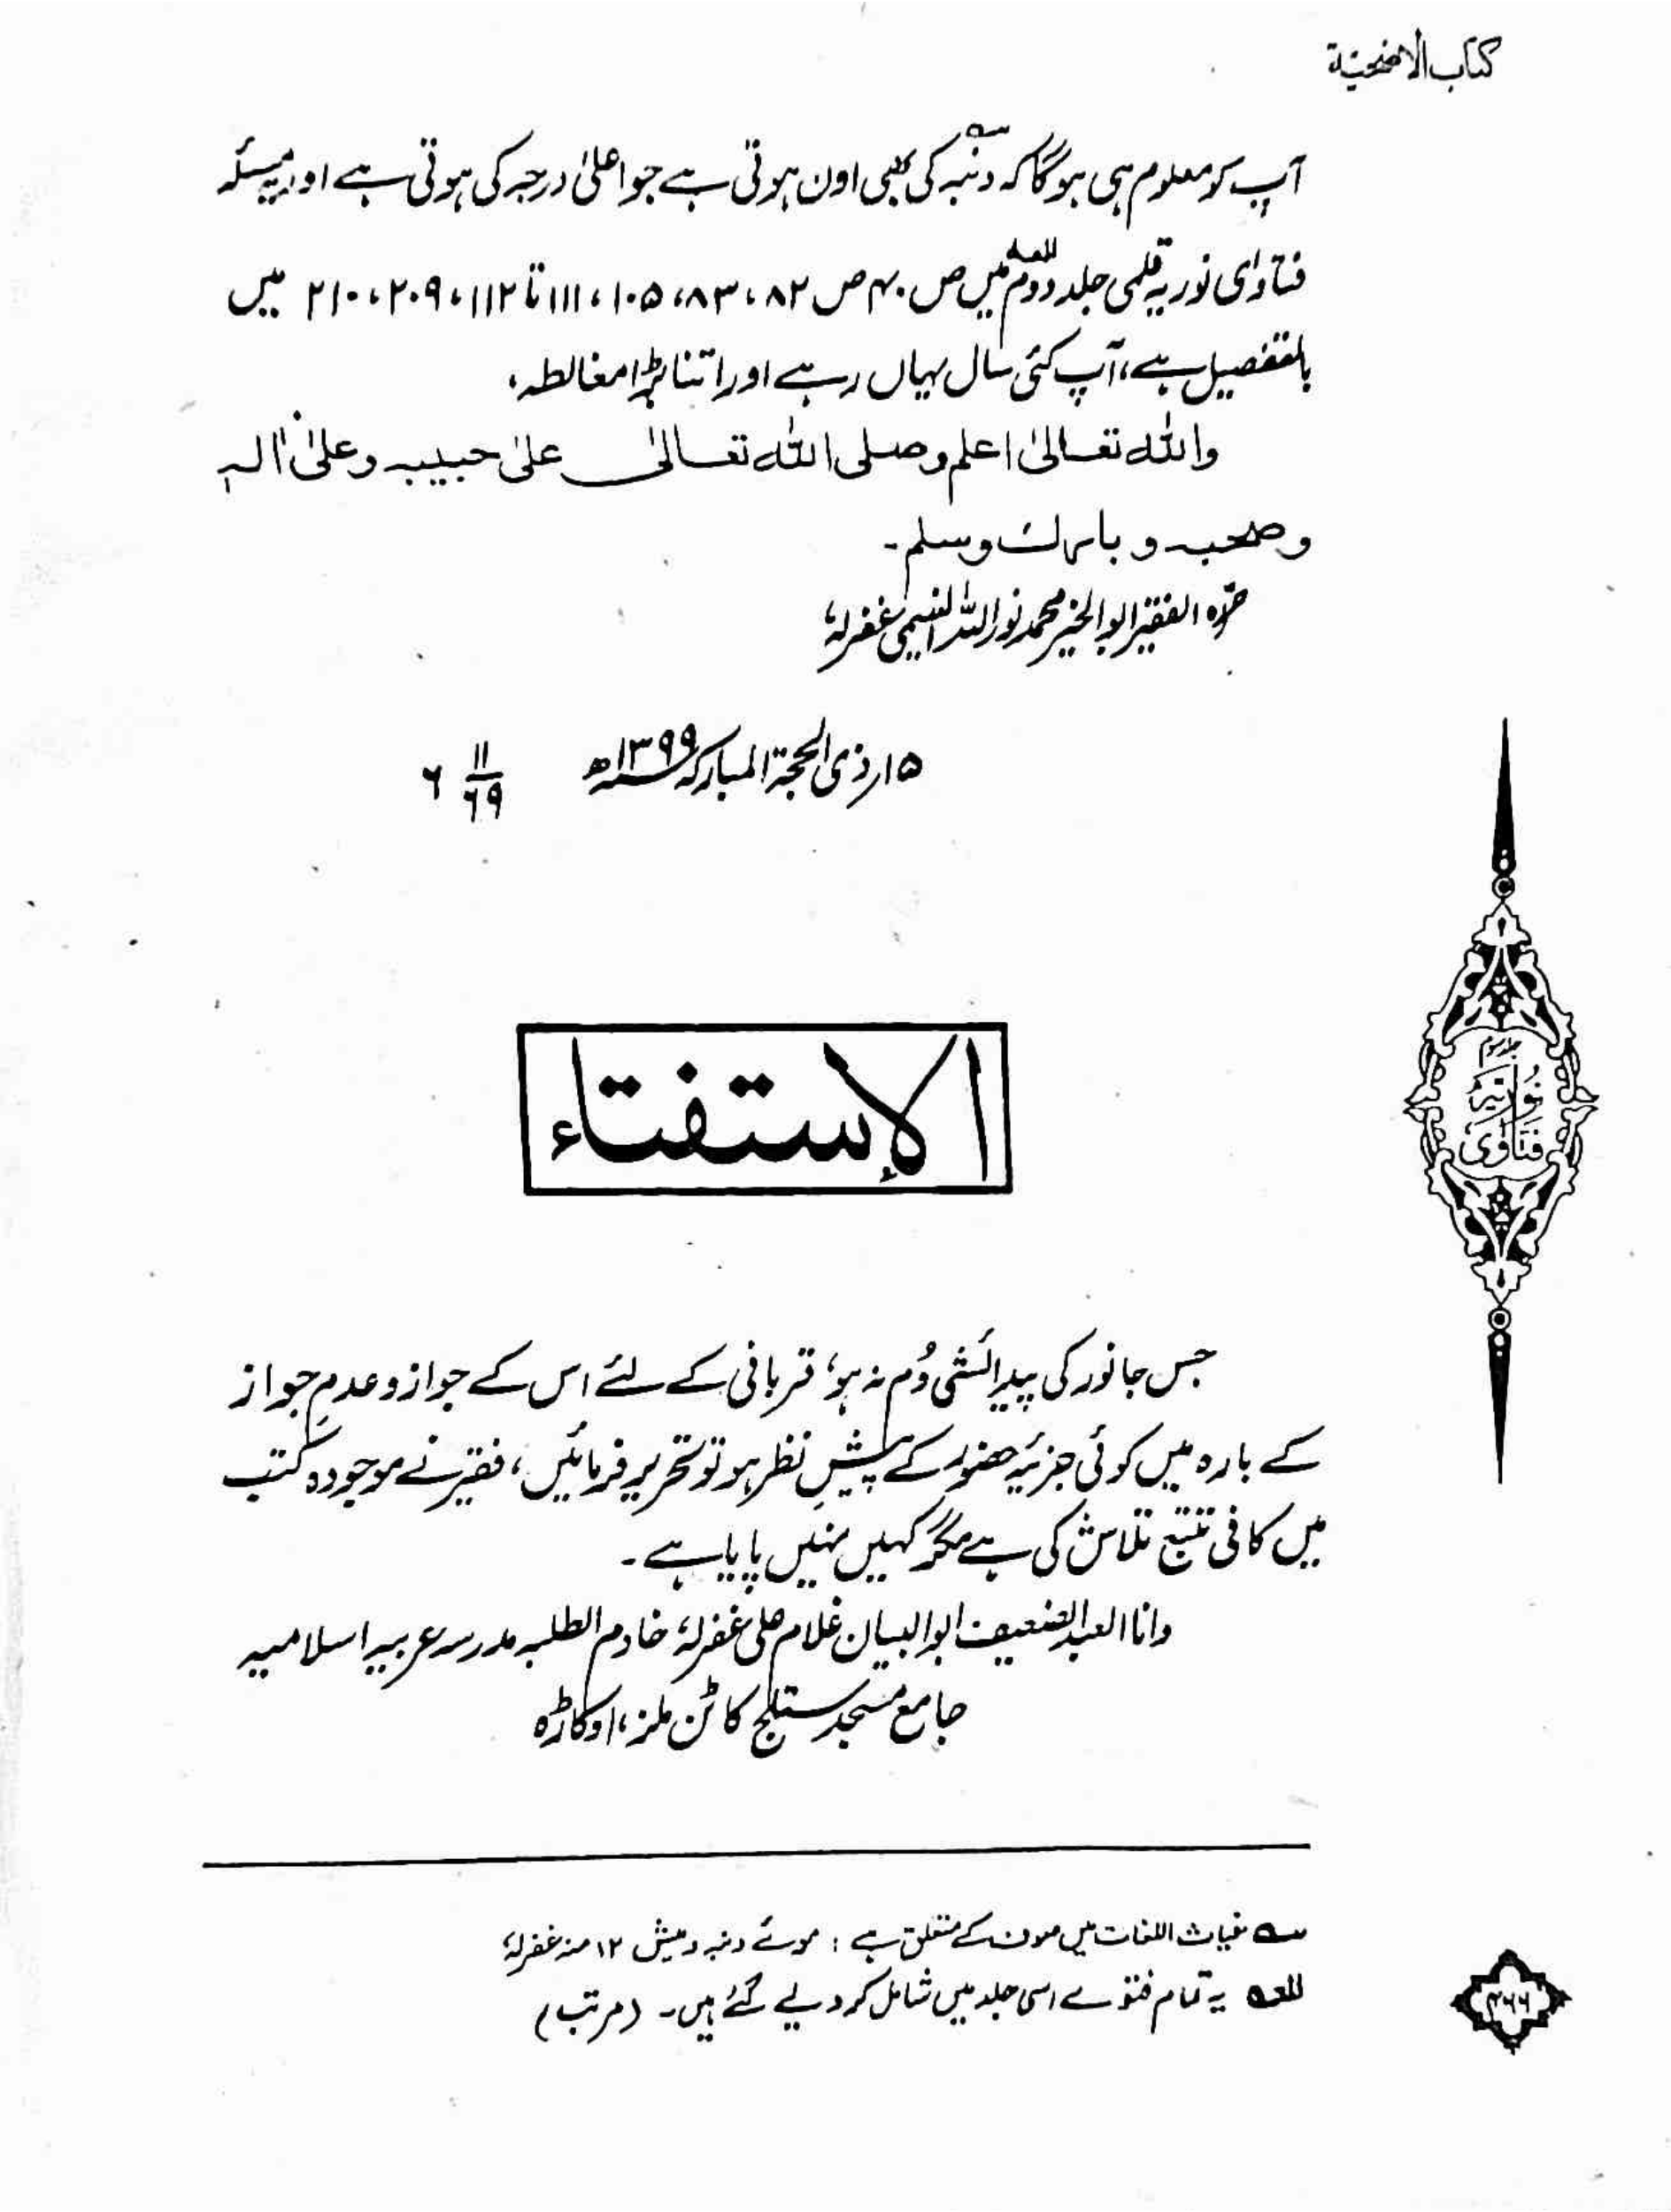 کتاب الاضحیۃ
آپ کو معلوم ہی ہوگا کہ دنبہ کی بھی اون ہوتی ہے جو اعلیٰ درجہ کی ہوتی ہے اور یہ مسئلہ
فتاوٰی نوریہ قلمی جلد دوم میں ص ۴۰ ص ۸۲، ۸۳، ۱۰۵، ۱۱۱ تا ۱۱۲، ۲۰۹، ۲۱۰ میں
بالتفصیل ہے، آپ کئی سال یہاں رہے اور اتنا بڑا مغالطہ،
واللہ تعالیٰ اعلم وصلی اللہ تعالیٰ علیٰ حبیبہ وعلیٰ اٰلہ
وصحبہ وبارک وسلم۔
حررہ الفقیر ابو الخیر محمد نور اللہ النعیمی غفرلہٗ
۱۵ ذی الحجۃ المبارکہ ۱۳۹۹ھ ۶ ۱۱ ۶۹
الإستفتاء
جس جانور کی پیدائشی دُم نہ ہو، قربانی کے لئے اس کے جواز و عدمِ جواز
کے بارہ میں کوئی جزئیہ حضور کے پیشِ نظر ہو تو تحریر فرمائیں، فقیر نے موجودہ کتب
میں کافی تتبع تلاش کی ہے مگر کہیں نہیں پایا ہے۔
وانا العبد الضعیف ابوالبیان غلام علی غفرلہٗ خادم الطلبہ مدرسہ عربیہ اسلامیہ
جامع مسجد ستلج کاٹن ملز، اوکاڑہ
جلد سوم
نوریہ
فتاوٰی
عہ غیاث اللغات میں صوف کے متعلق ہے: موئے دنبہ و میش ۱۲ منہ غفرلہٗ
للعہ یہ تمام فتوے اسی جلد میں شامل کر دیے گئے ہیں۔ (مرتب)